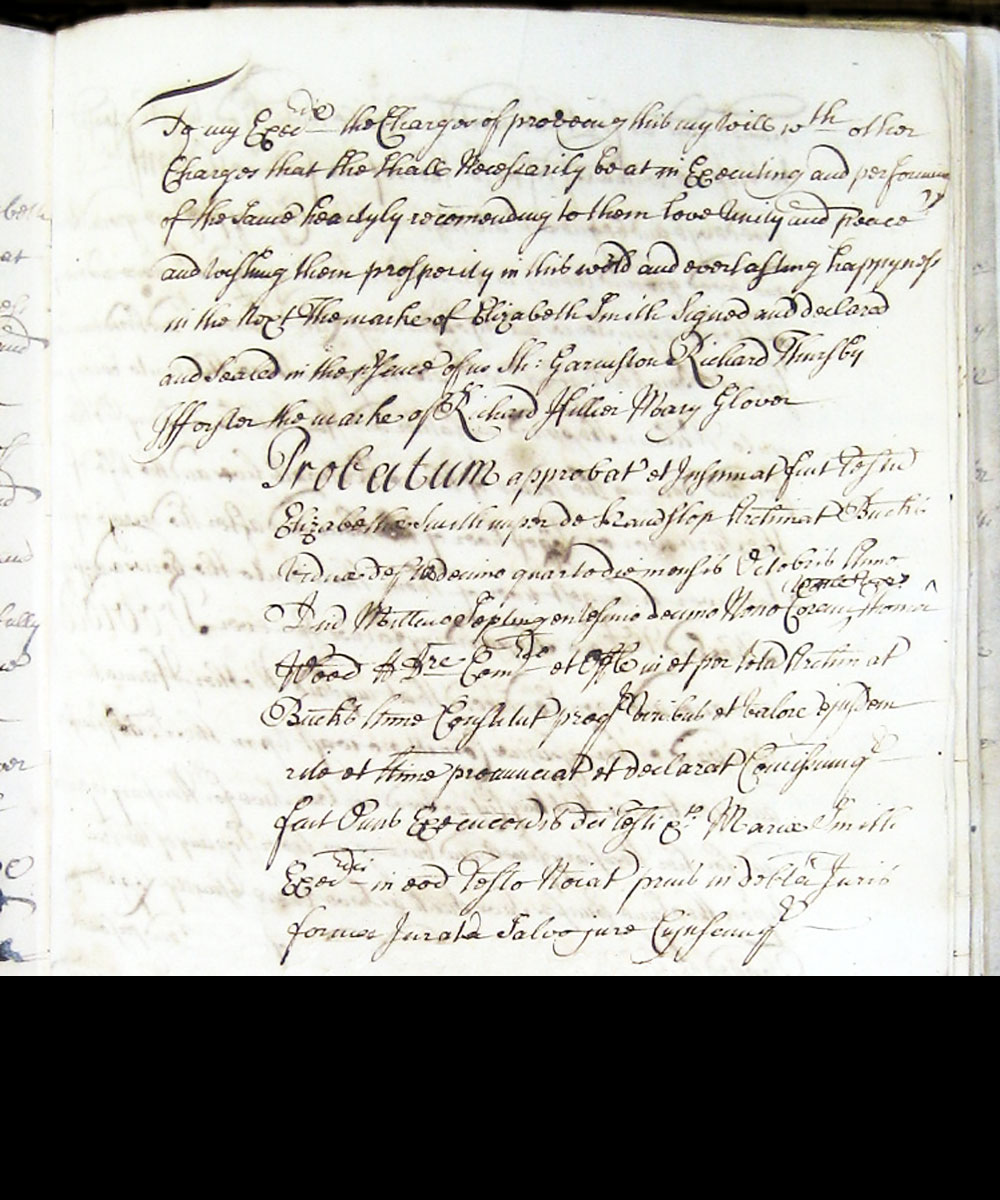 To my Exec^rix the Charges of proveing this my Will w^th other
Charges that she shall Necessarily be at in Executing and performing
of the same heartyly recomending to them love Unity and peace
and wishing them prosperity in this world and everlasting happyness
in the Next The marke of Elizabeth Smith Signed and declared
and Sealed in the p^rsence of us Th: Garmston Richard Thursby
Fforster the marke of Richard Hillier Mary Glover
Probatum approbat et Insinuat fuit Testu
Elizabethæ Smith nuper de Handslop Archinat Bucks
viduæ def decimo quarto die mensis Octobris Anno
Dni Millimo Septingentesimo decimo Nono Coram Thoma
Wood Com^rio et Offle in et per totu Archinat
Bucks ltime Constitut proq viribus et valore ejusdem
rite et ltime pronunciat et declarat Comissaq
fuit Onus Execucois dci Testi Mariæ Smith
Exec^rici in eod Testo Noiat prius in debta Juris
forma Jurata Salvo jure Cujuscunq